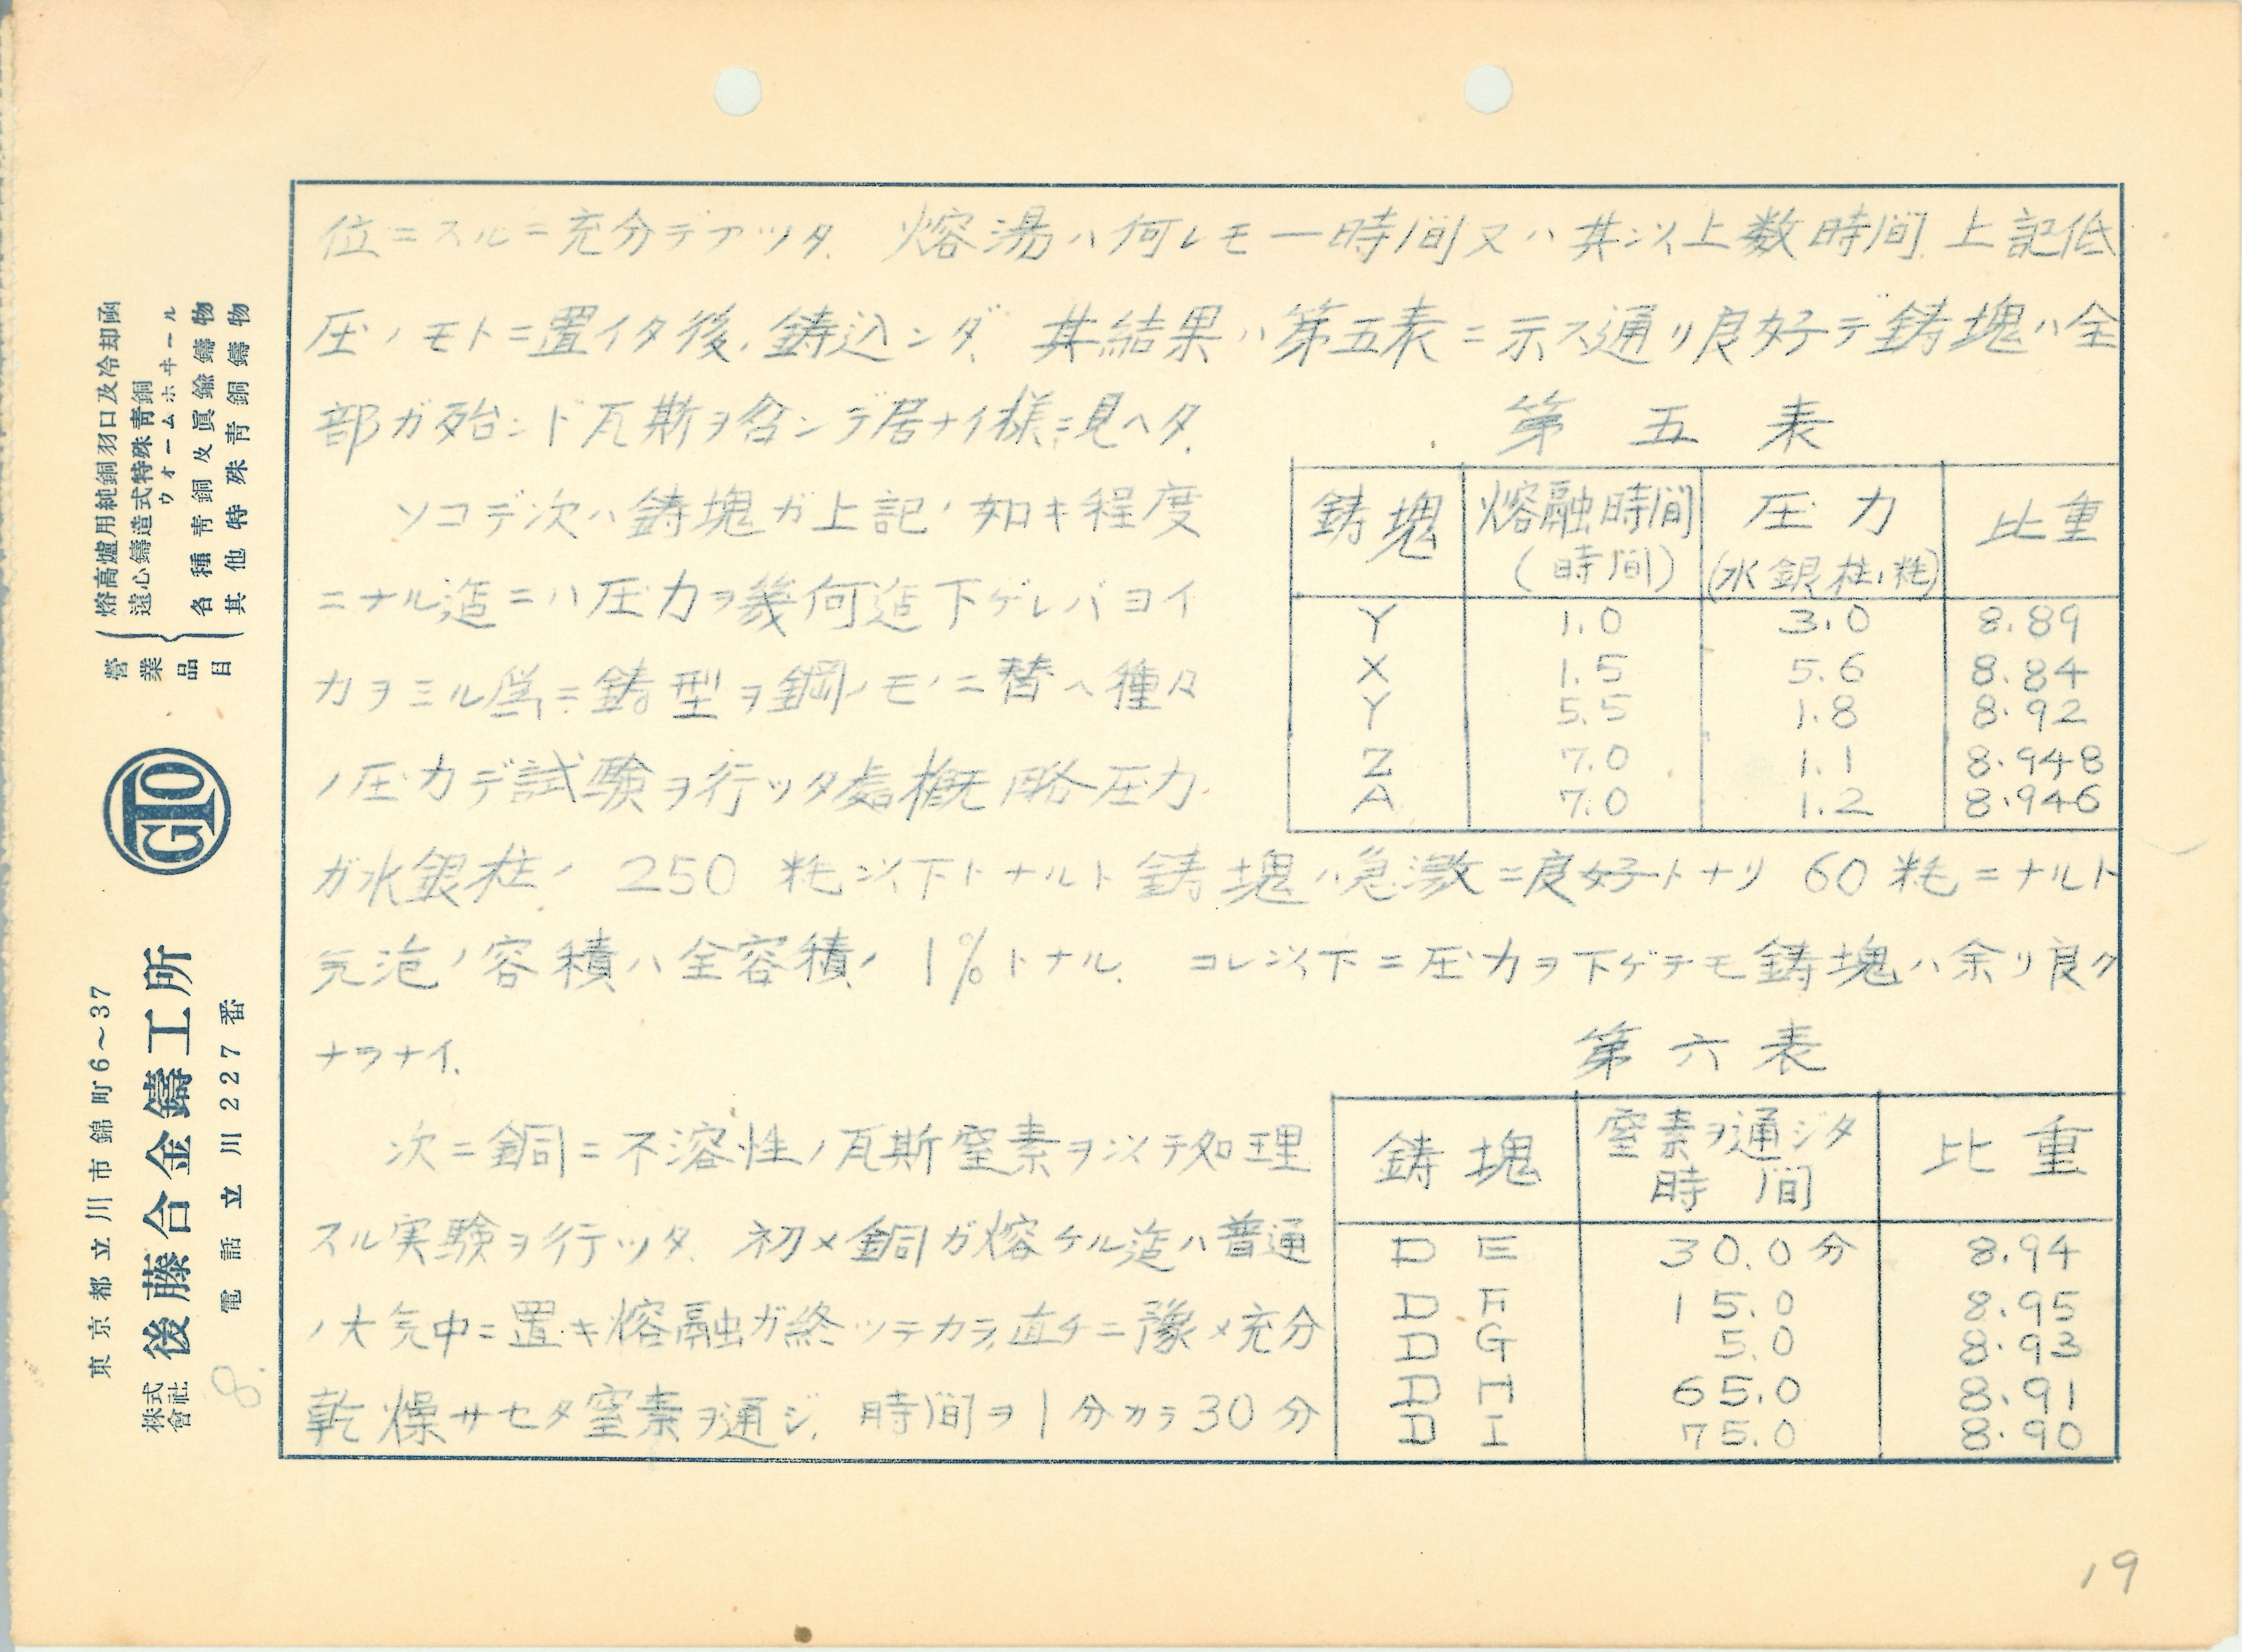 位ニスルニ充分デアツタ. 熔湯ハ何レモ一時間又ハ其以上数時間. 上記低
圧ノモトニ置イタ後. 鋳込ンダ. 其結果ハ第五表ニ示ス通リ良好デ鋳塊ハ全
部ガ殆ンド瓦斯ヲ含ンデ居ナイ様ニ見ヘタ.
第五表
鋳塊 熔融時間(時間) 圧力(水銀柱ノ粍) 比重
Y 1.0 3.0 8.89
X 1.5 5.6 8.84
Y 5.5 1.8 8.92
Z 7.0 1.1 8.948
A 7.0 1.2 8.946
ソコデ次ハ鋳塊ガ上記ノ如キ程度
ニナル迄ニハ圧力ヲ幾何迄下ゲレバヨイ
カヲミル為ニ鋳型ヲ鋼ノモノニ替ヘ種々
ノ圧力デ試験ヲ行ッタ處概略圧力
ガ水銀柱ノ 250 粍以下トナルト鋳塊ハ急激ニ良好トナリ 60 粍ニナルト
気泡ノ容積ハ全容積ノ 1% トナル. コレ以下ニ圧力ヲ下ゲテモ鋳塊ハ余リ良ク
ナラナイ.
第六表
鋳塊 窒素ヲ通ジタ時間 比重
D E 30.0分 8.94
D F 15.0 8.95
D G 5.0 8.93
H 65.0 8.91
D I 75.0 8.90
次ニ銅ニ不溶性ノ瓦斯窒素ヲ以テ処理
スル実験ヲ行ッタ. 初メ銅ガ熔ケル迄ハ普通
ノ大気中ニ置キ熔融ガ終ッテカラ直チニ豫メ充分
乾燥サセタ窒素ヲ通ジ. 時間ヲ1分カラ30分
營業品目
熔高爐用純銅羽口及冷却凾
遠心鑄造式特殊靑銅
ウォームホヰール
各種靑銅及眞鍮鑄物
其他特殊靑銅鑄物
GTO
東京都立川市錦町6～37
株式會社 後藤合金鑄工所
電話立川227番
8.
19